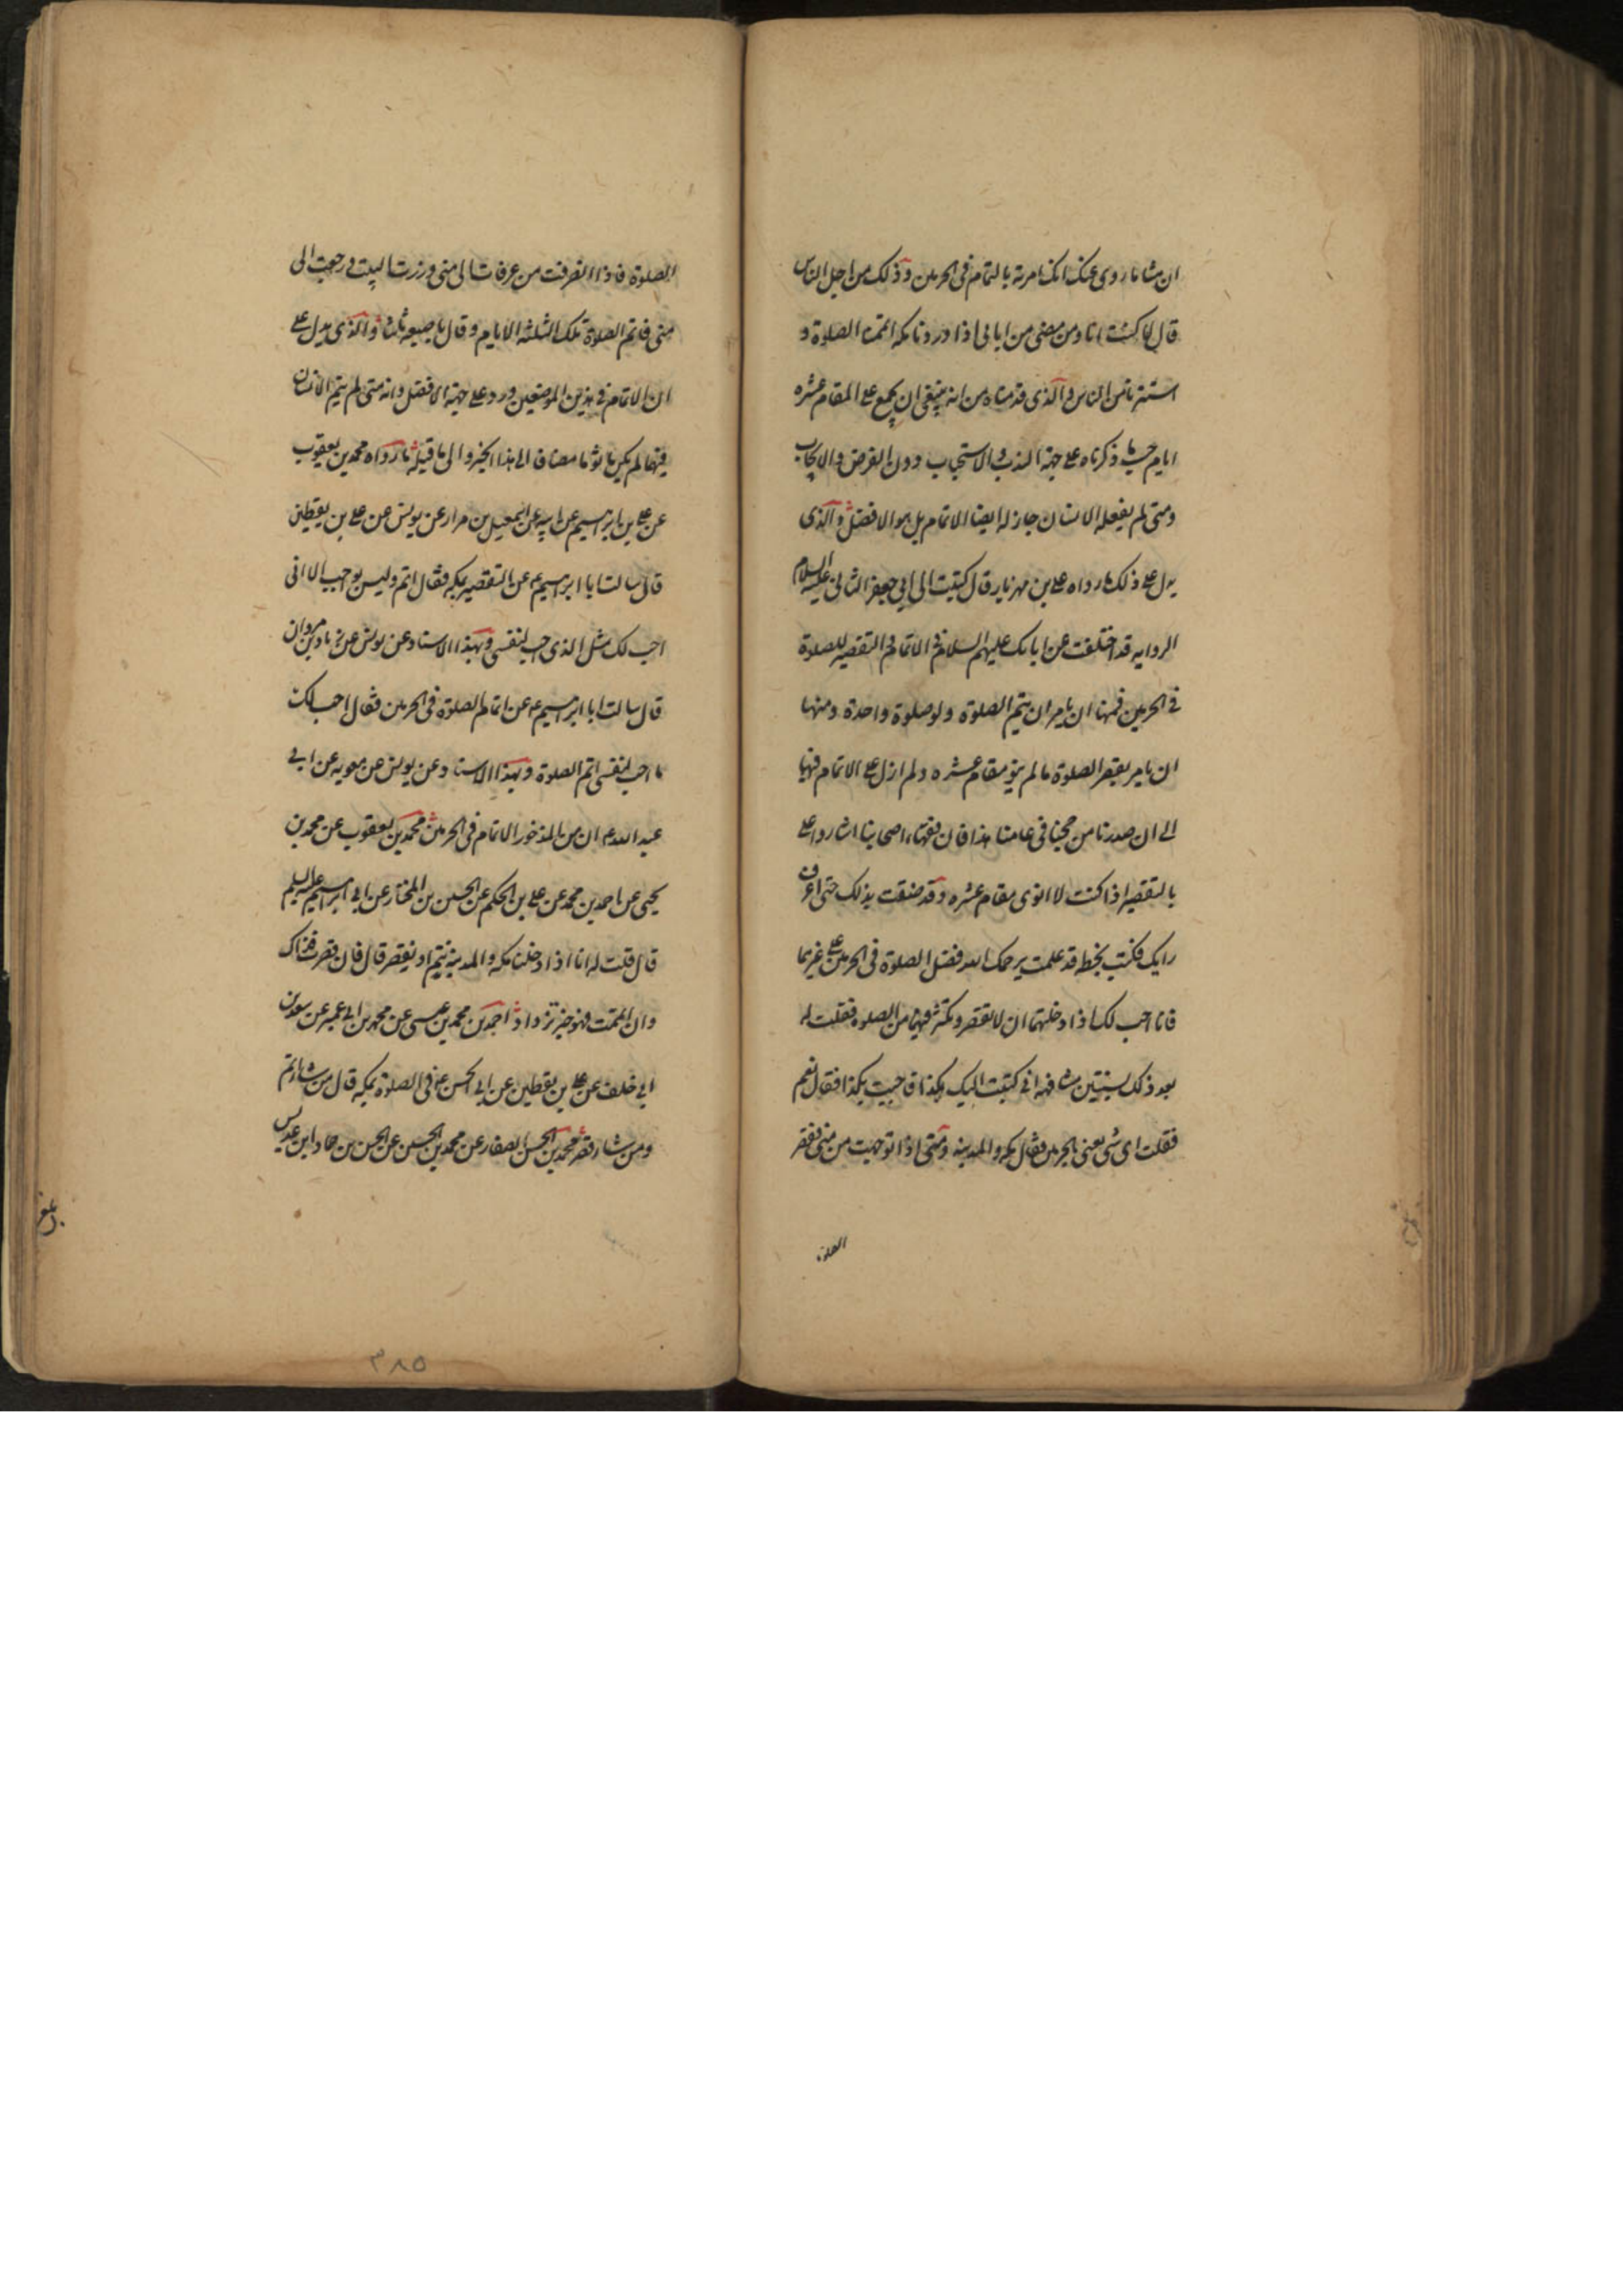 ان هشاما روى عنك انك امرته بالتمام فى الحرمين وذلك من اجل الناس
قال لا كنت انا ومن مضى من ابائى اذا وردنا مكه اتممنا الصلوة و
استترنا من الناس والذى قدمناه من انه ينبغى ان يجمع على المقام عشره
ايام حسب ما ذكرناه على جهة الندب والاستحباب دون الفرض والايجاب
ومتى لم يفعله الانسان جاز له ايضا الاتمام بل هو الافضل والذى
يدل على ذلك ما رواه على بن مهزيار قال كتبت الى ابى جعفر الثانى عليه السلام
الروايه قد اختلفت عن ابائك عليهم السلام فى الاتمام والتقصير للصلوة
فى الحرمين فمنها ان يامر ان يتم الصلوة ولو صلوة واحدة ومنها
ان يامر بقصر الصلوة ما لم ينو مقام عشره ولم ازل على الاتمام فيها
الى ان صدرنا من حجنا فى عامنا هذا فان فقهاء اصحابنا اشاروا على
بالتقصير اذا كنت لا انوى مقام عشره وقد ضقت بذلك حتى اعرف
رايك فكتب بخطه قد علمت يرحمك الله فضل الصلوة فى الحرمين على غيرهما
فانا احب لك اذا دخلتهما ان لا تقصر وتكثر فيهما من الصلوه فقلت له
بعد ذلك بسنتين مشافهه انى كتبت اليك بكذا فاجبت بكذا فقال نعم
فقلت اى شى يعنى بالحرمين فقال مكه والمدينه ومتى اذا توجهت من منى فقصر
الصلوة
الصلوة فاذا انصرفت من عرفات الى منى وزرت البيت ورجعت الى
منى فاتم الصلوة تلك الثلثه الايام وقال باصبعه ثلثا والذى يدل على
ان الاتمام فى هذين الموضعين ورد على جهة الافضل وانه متى لم يتم الانسان
فيهما لم يكن ماثوما مضاف الى هذا الخبر والى ما قبله ما رواه محمد بن يعقوب
عن على بن ابرهيم عن ابيه عن اسمعيل بن مرار عن يونس عن على بن يقطين
قال سالت ابا ابرهيم ع عن التقصير بمكه فقال اتم وليس بواجب الا انى
احب لك مثل الذى احب لنفسى وبهذا الاسناد عن يونس عن زياد بن مروان
قال سالت ابا ابرهيم ع عن اتمام الصلوة فى الحرمين فقال احب لك
ما احب لنفسى اتم الصلوة وبهذا الاسناد عن يونس عن معويه عن ابى
عبد الله ع ان من المذخور الاتمام فى الحرمين محمد بن يعقوب عن محمد بن
يحيى عن احمد بن محمد عن على بن الحكم عن الحسين بن المختار عن ابى ابرهيم عليه السلم
قال قلت له انا اذا دخلنا مكه والمدينه نتم او نقصر قال فان قصرت فذاك
وان اتممت فهو خير تزداد احمد بن محمد بن عيسى عن محمد بن ابى عمير عن سعد بن
ابى خلف عن على بن يقطين عن ابى الحسن ع فى الصلوة بمكه قال من شاء اتم
ومن شاء قصر محمد بن الحسن الصفار عن محمد بن الحسين عن الحسن بن حماد ابن عديس
بلغ
٣٨٥